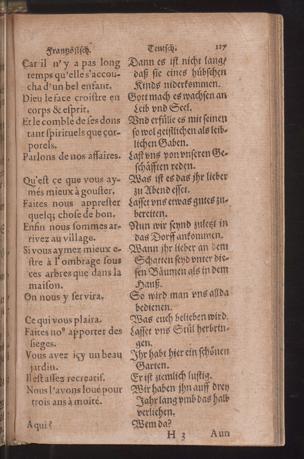 Frantzösisch. Teutsch. 117
Car il n'y a pas long
temps qu'elle s'accou-
cha d'un bel enfant.
Dieu le face croistre en
corps & esprit.
Et le comble de ses dons
tant spirituels que cor-
porels.
Parlons de nos affaires.
Qu'est ce que vous ay-
més mieux à gouster.
Faites nous apprester
quelq; chose de bon.
Enfin nous sommes ar-
rivez au village.
Si vous aymez mieux e-
stre à l'ombrage sous
ces arbres que dans la
maison.
On nous y servira.
Ce qui vous plaira.
Faites noꝰ apporter des
sieges.
Vous avez icy un beau
jardin.
Il est assez recreatif.
Nous l'avons loué pour
trois ans à moité.
A qui?
Dann es ist nicht lang/
daß sie eines hübschen
Kinds niderkommen.
Gott mach es wachsen an
Leib vnd Seel.
Vnd erfülle es mit seinen
so wol geistlichen als leib-
lichen Gaben.
Last vns von vnseren Ge-
schäfften reden.
Was ist es das jhr lieber
zu Abend esset.
Lasset vns etwas gutes zu-
bereiten.
Nun wir seynd zuletzt in
das Dorff ankommen.
Wann jhr lieber an dem
Schatten seyd vnter die-
sen Bäumen als in dem
Hauß.
So wird man vns allda
bedienen.
Was euch belieben wird.
Lasset vns Stül herbrin-
gen.
Jhr habt hier ein schönen
Garten.
Er ist ziemlich lustig.
Wir haben jhn auff drey
Jahr lang vmb das halb
verliehen.
Wem da?
H 3 Aun